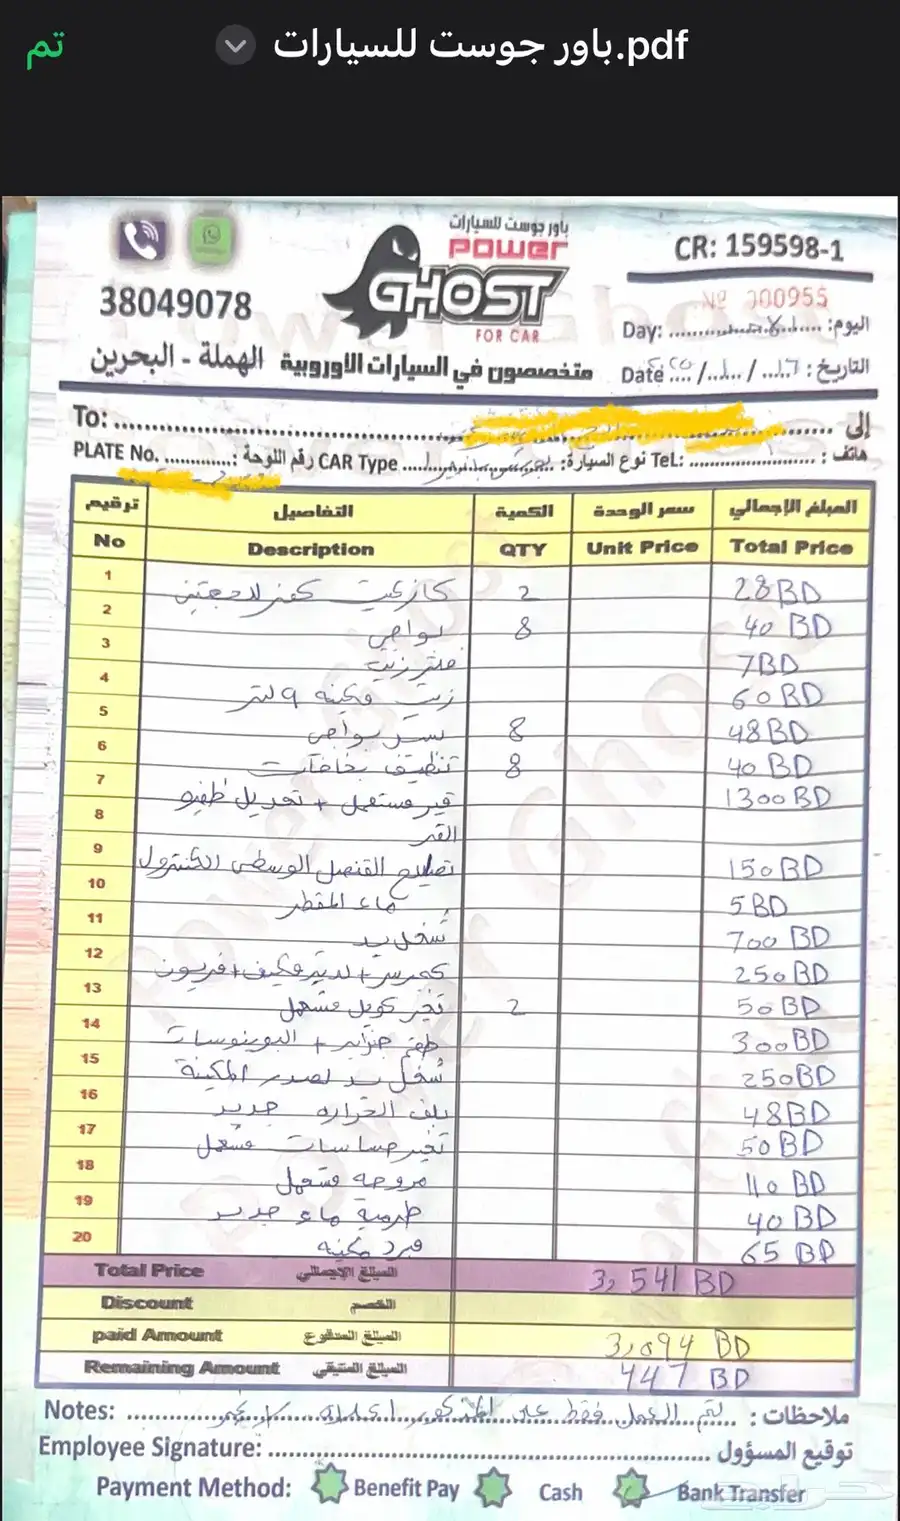 تم
باور جوست للسيارات.pdf
باور جوست للسيارات
POWER
GHOST
FOR CAR
CR: 159598-1
38049078
№ 000955
Day: اليوم:
متخصصون في السيارات الأوروبية الهملة - البحرين
Date التاريخ:
To: إلى
PLATE No. رقم اللوحة: CAR Type نوع السيارة: Tel: هاتف:
ترقيم التفاصيل الكمية سعر الوحدة المبلغ الإجمالي
No Description QTY Unit Price Total Price
1 2 28 BD
2 بواجي 8 40 BD
3 فلتر زيت 7 BD
4 زيت مكينه 9 لتر 60 BD
5 بواجي 8 48 BD
6 تنظيف بخاخات 8 40 BD
7 قير مستعمل + تعديل 1300 BD
8 القير
9 تصليح القنصل الوسطي الكنترول 150 BD
10 ماء المقطر 5 BD
11 شغل يد 700 BD
12 250 BD
13 كويل مستعمل 2 50 BD
14 طقم جنزاير + البونوسات 300 BD
15 شغل يد لصدر المكينة 250 BD
16 بلف الحراره جديد 48 BD
17 حساسات مستعمل 50 BD
18 مروحه مستعمل 110 BD
19 طرمبة ماء جديد 40 BD
20 مبرد مكينه 65 BD
Total Price المبلغ الإجمالي 3,541 BD
Discount الخصم
paid Amount المبلغ المدفوع 3,094 BD
Remaining Amount المبلغ المتبقي 447 BD
Notes: يتم العمل فقط على المذكور اعلاه ملاحظات:
Employee Signature: توقيع المسؤول
Payment Method: Benefit Pay Cash Bank Transfer
حراج